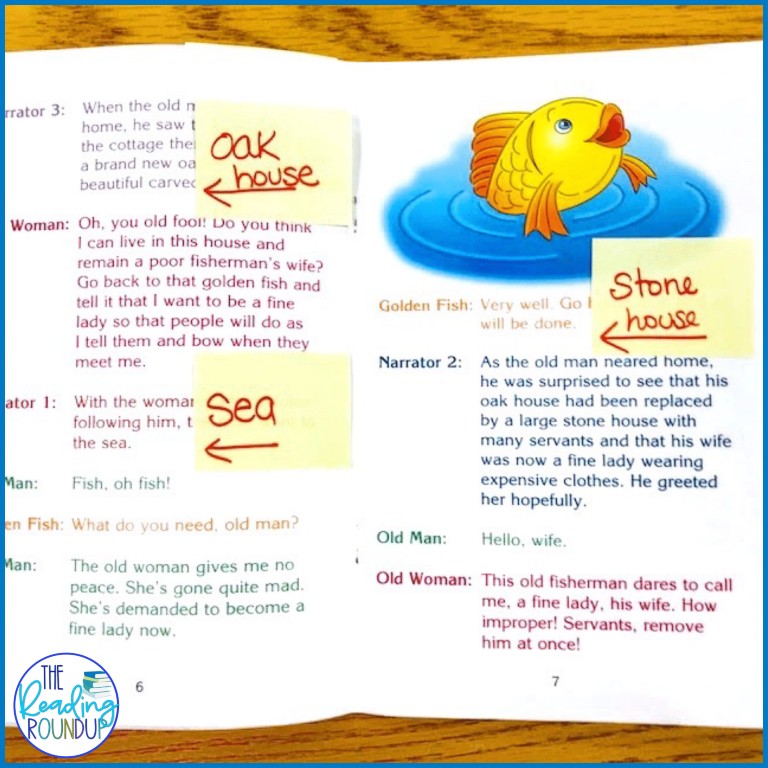 rrator 3: When the old
home, he saw
the cottage the
a brand new oa
beautiful carve
Oak
house
Woman: Oh, you old fool! Do you think
I can live in this house and
remain a poor fisherman's wife?
Go back to that golden fish and
tell it that I want to be a fine
lady so that people will do as
I tell them and bow when they
meet me.
ator 1: With the woma
following him, t
the sea.
Sea
Man: Fish, oh fish!
en Fish: What do you need, old man?
Man: The old woman gives me no
peace. She's gone quite mad.
She's demanded to become a
fine lady now.
6
Golden Fish: Very well. Go
will be done.
Stone
house
Narrator 2: As the old man neared home,
he was surprised to see that his
oak house had been replaced
by a large stone house with
many servants and that his wife
was now a fine lady wearing
expensive clothes. He greeted
her hopefully.
Old Man: Hello, wife.
Old Woman: This old fisherman dares to call
me, a fine lady, his wife. How
improper! Servants, remove
him at once!
7
THE
Reading
ROUNDUP